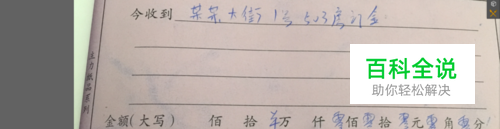 今收到 某某大街1号503房订金
百科全说
助你轻松解决
金額(大写) 佰 拾 万 仟 零佰零拾零元零角零分